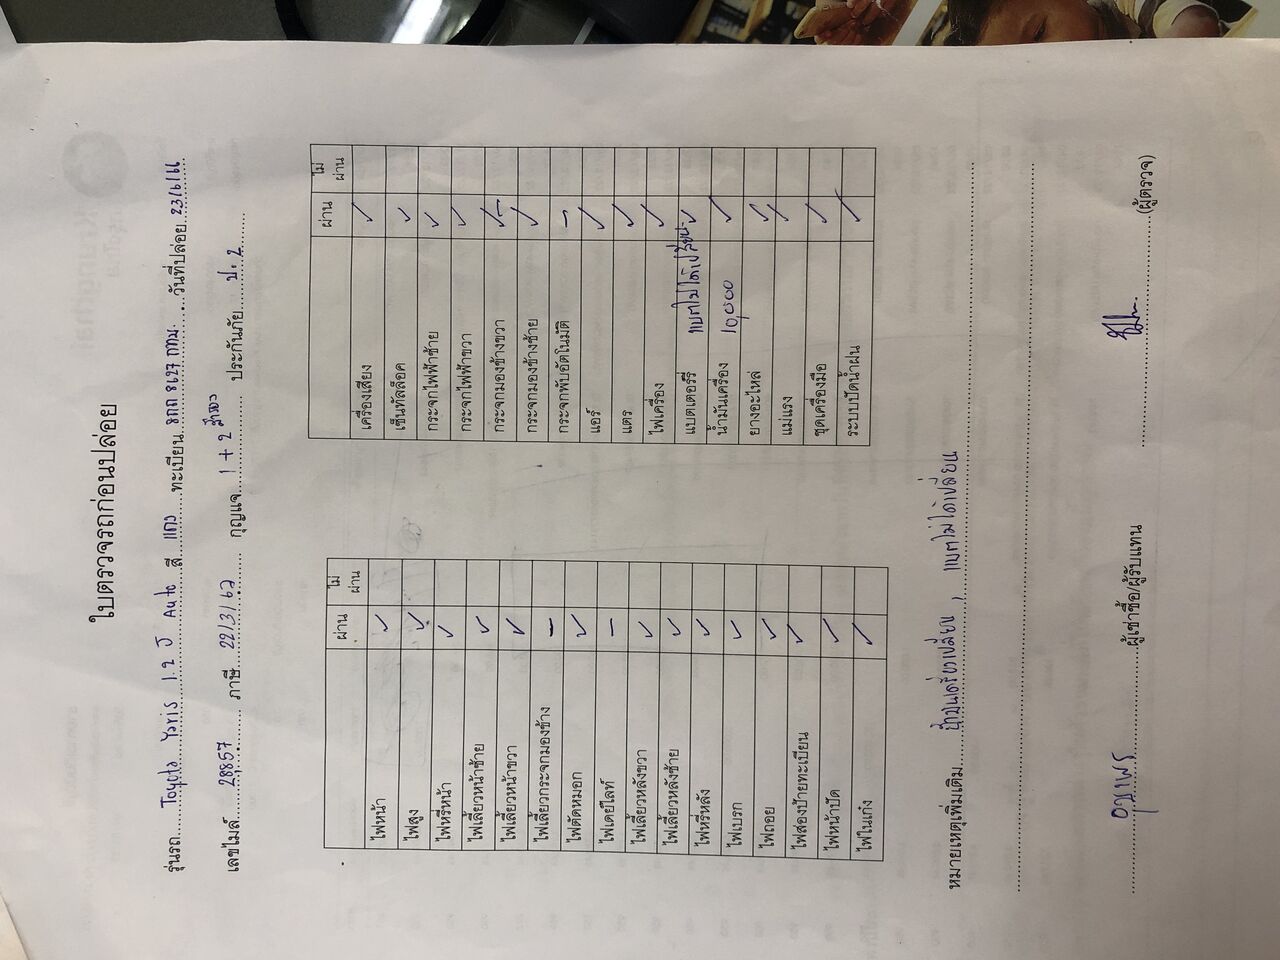 ใบตรวจรถก่อนปล่อย
รุ่นรถ Toyota Yaris 1.2 J Auto สี แดง ทะเบียน 8627 กทม. วันที่ปล่อย 23/6/66
เลขไมล์ 28857 ภาษี 22/3/67 กุญแจ 1 + 2 สำรอง ประกันภัย ป. 2
ผ่าน ไม่ผ่าน
ไฟหน้า ✓
ไฟสูง ✓
ไฟหรี่หน้า ✓
ไฟเลี้ยวหน้าซ้าย ✓
ไฟเลี้ยวหน้าขวา ✓
ไฟเลี้ยวกระจกมองข้าง –
ไฟตัดหมอก ✓
ไฟเดย์ไลท์ –
ไฟเลี้ยวหลังขวา ✓
ไฟเลี้ยวหลังซ้าย ✓
ไฟหรี่หลัง ✓
ไฟเบรก ✓
ไฟถอย ✓
ไฟส่องป้ายทะเบียน ✓
ไฟหน้าปัด ✓
ไฟในเก๋ง ✓
ผ่าน ไม่ผ่าน
เครื่องเสียง ✓
เซ็นทัลล็อค ✓
กระจกไฟฟ้าซ้าย ✓
กระจกไฟฟ้าขวา ✓
กระจกมองข้างขวา ✓
กระจกมองข้างซ้าย ✓
กระจกพับอัตโนมัติ –
แอร์ ✓
แตร ✓
ไฟเครื่อง ✓
แบตเตอรรี่ แบตไม่ได้เปลี่ยน ✓
น้ำมันเครื่อง 10,000 ✓
ยางอะไหล่ ✓
แม่แรง ✓
ชุดเครื่องมือ ✓
ระบบปัดน้ำฝน ✓
หมายเหตุเพิ่มเติม น้ำมันเครื่องเปลี่ยน , แบตไม่ได้เปลี่ยน
ผู้เช่าซื้อ/ผู้รับแทน (ผู้ตรวจ)